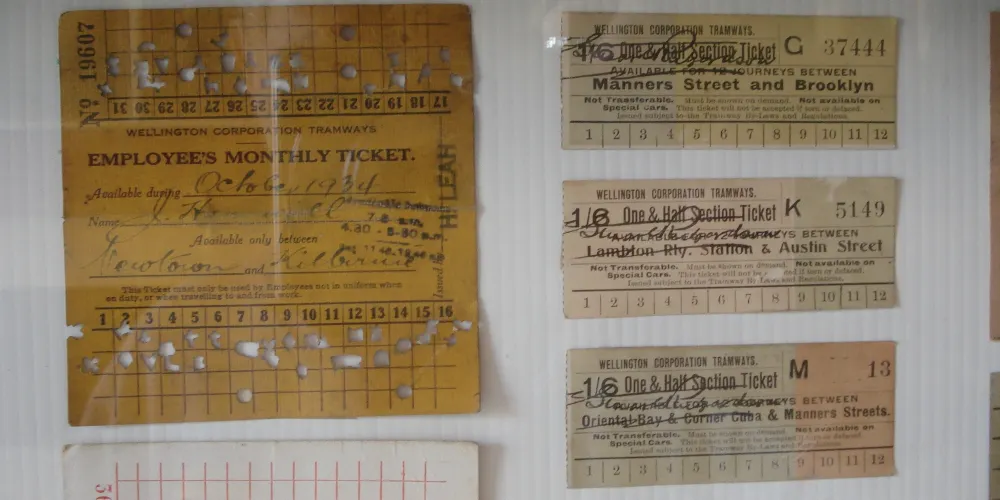 Nº 19607
31 30 29 28 27 26 25 24 23 22 21 20 19 18 17
WELLINGTON CORPORATION TRAMWAYS
EMPLOYEE'S MONTHLY TICKET.
Available during October 1934
Name J.
7-8 a.m.
4.30 - 5-30 p.m.
Available only between
Newtown and Kilbirnie
This Ticket must only be used by Employees not in uniform when
on duty, or when travelling to and from work.
Issued
H LEAH
1 2 3 4 5 6 7 8 9 10 11 12 13 14 15 16
WELLINGTON CORPORATION TRAMWAYS.
1/6 One & Half Section Ticket G 37444
AVAILABLE FOR 12 JOURNEYS BETWEEN
Manners Street and Brooklyn
Not Transferable. Must be shown on demand. Not available on
Special Cars. This ticket will not be accepted if torn or defaced.
Issued subject to the Tramway By-Laws and Regulations.
1 2 3 4 5 6 7 8 9 10 11 12
WELLINGTON CORPORATION TRAMWAYS.
1/6 One & Half Section Ticket K 5149
JOURNEYS BETWEEN
Lambton Rly. Station & Austin Street
Not Transferable. Must be shown on demand. Not available on
Special Cars. This ticket will not be accepted if torn or defaced.
Issued subject to the Tramway By-Laws and Regulations.
1 2 3 4 5 6 7 8 9 10 11 12
WELLINGTON CORPORATION TRAMWAYS.
1/6 One & Half Section Ticket M 13
JOURNEYS BETWEEN
Oriental Bay & Corner Cuba & Manners Streets.
Not Transferable. Must be shown on demand. Not available on
Special Cars. This ticket will not be accepted if torn or defaced.
Issued subject to the Tramway By-Laws and Regulations.
1 2 3 4 5 6 7 8 9 10 11 12